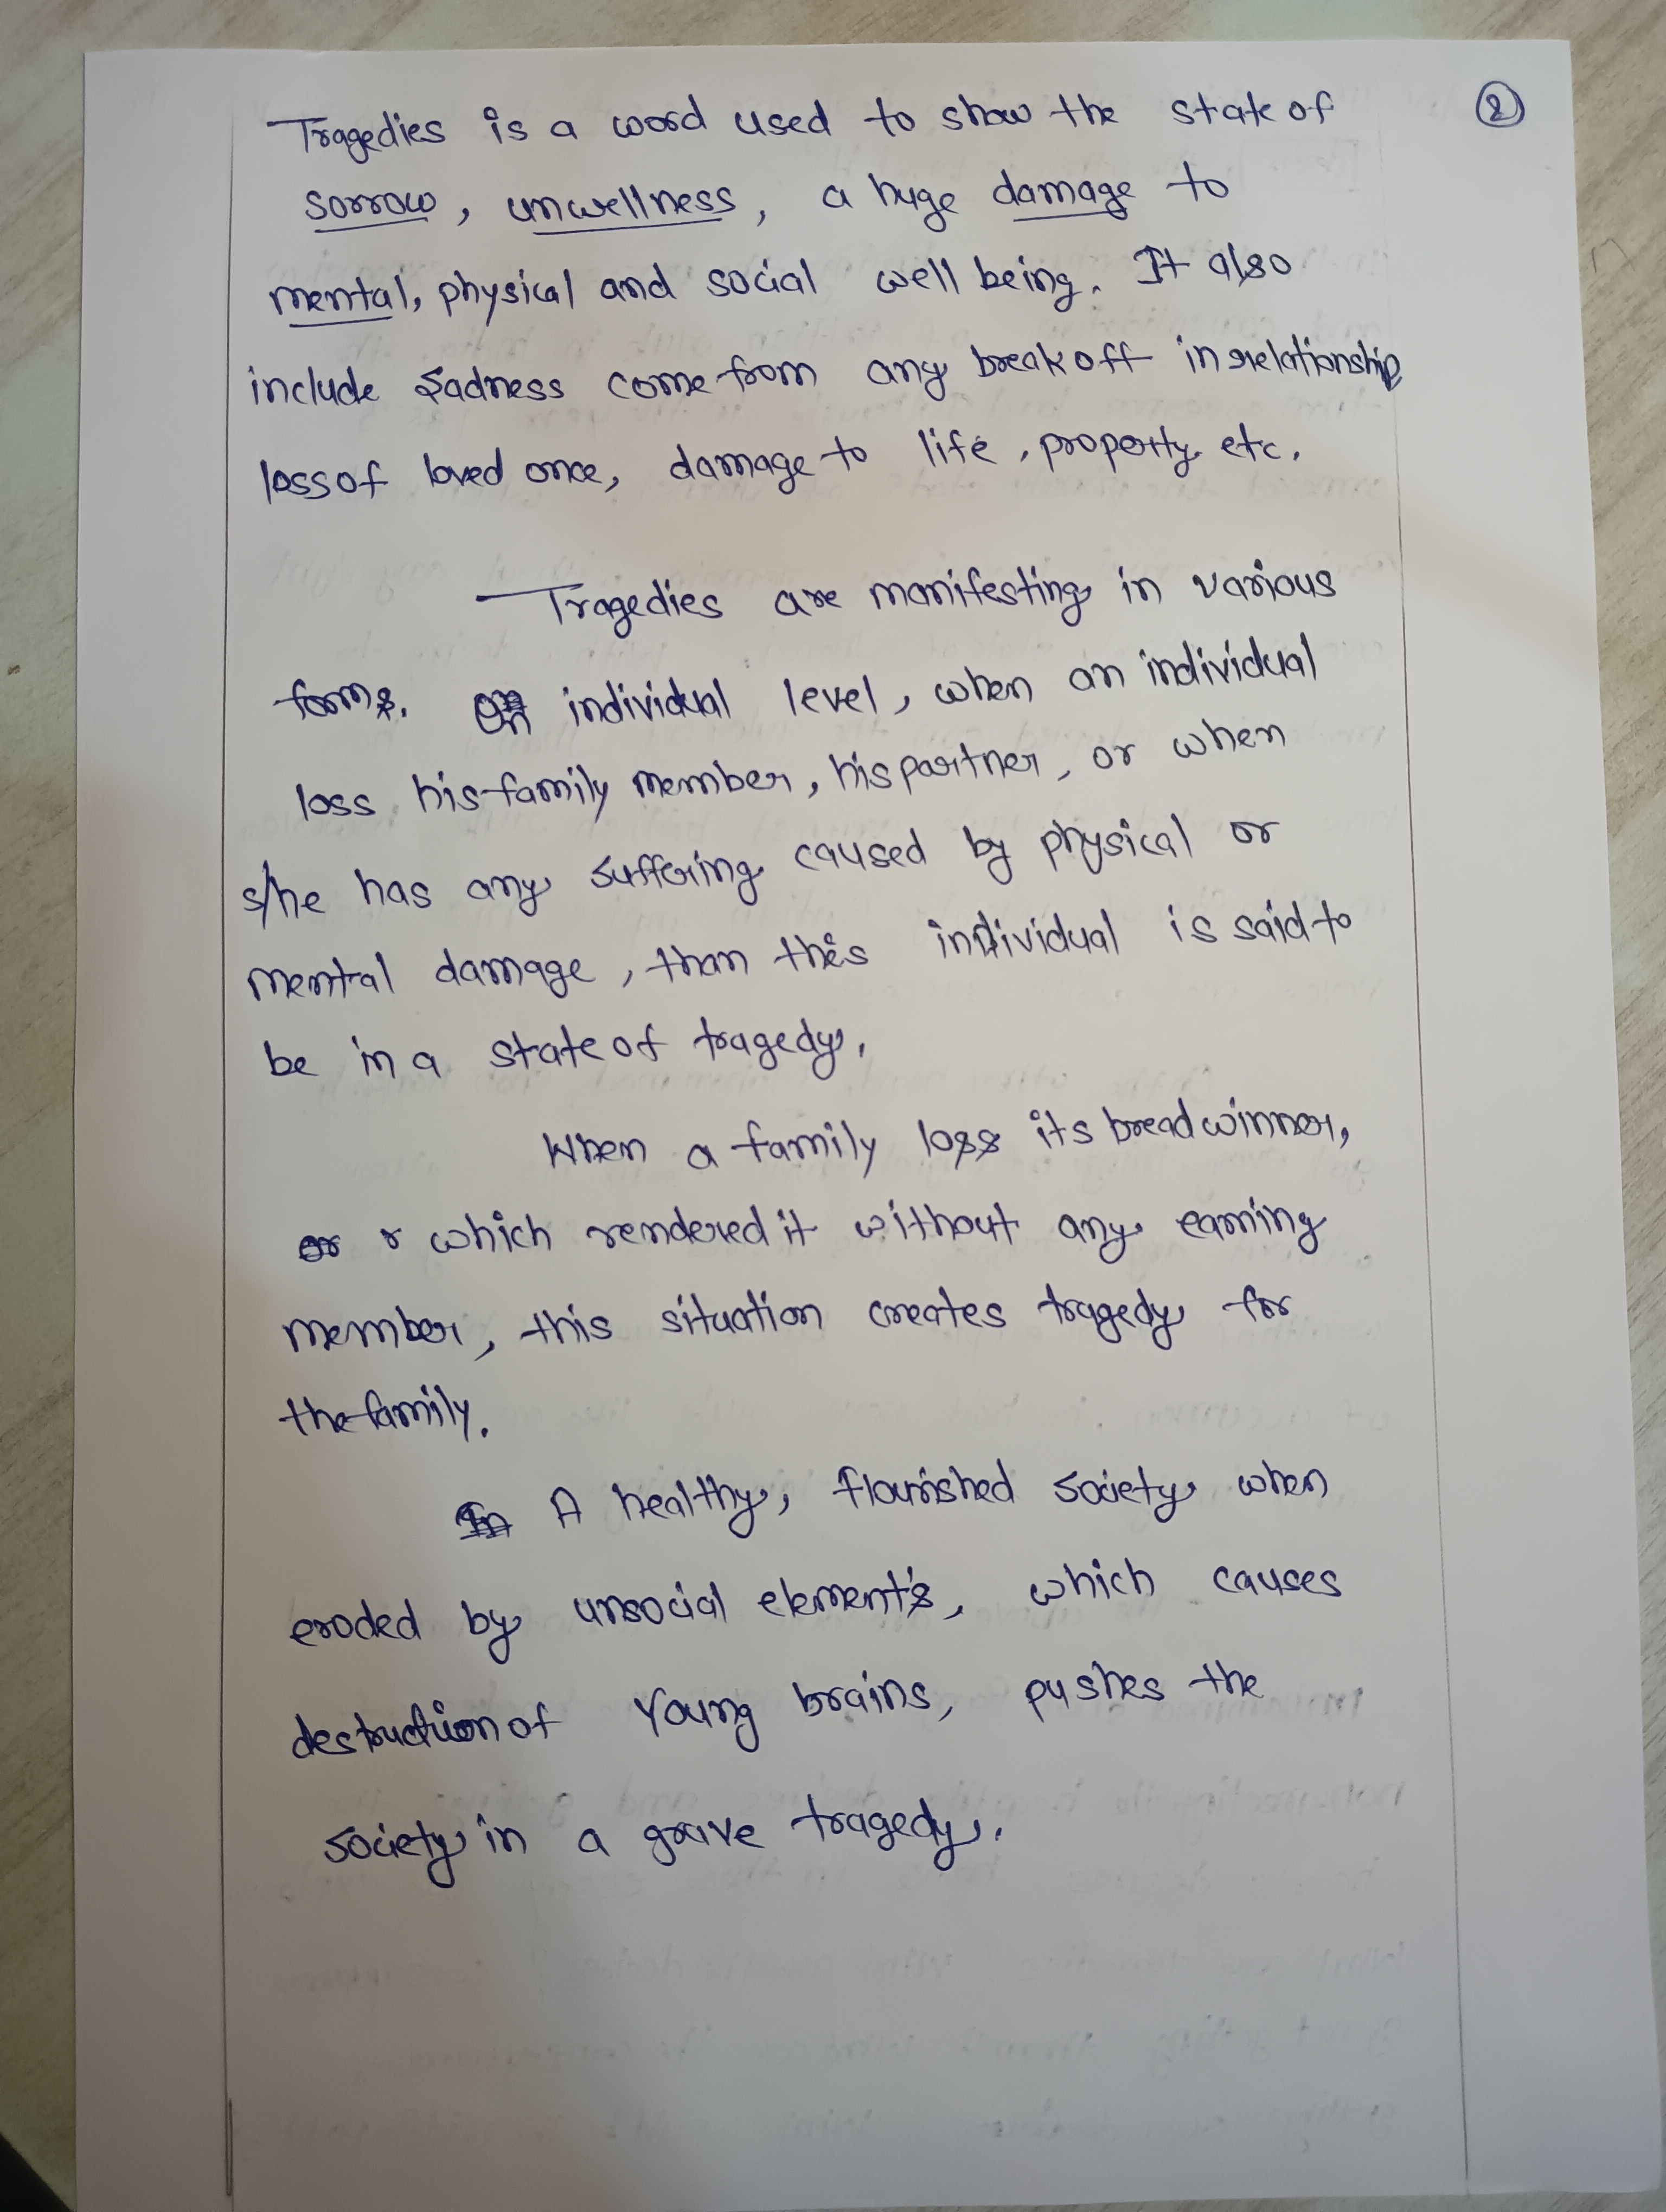 2
Tragedies is a word used to show the state of
sorrow, unwellness, a huge damage to
mental, physical and social well being. It also
include sadness come from any break off in relationship
loss of loved once, damage to life, property etc.
Tragedies are manifesting in various
forms. On individual level, when an individual
loss his family member, his partner, or when
s/he has any suffering caused by physical or
mental damage, than this individual is said to
be in a state of tragedy.
When a family loss its bread winner,
or r which rendered it without any earning
member, this situation creates tragedy for
the family.
In A healthy, flourished society when
eroded by unsocial element's, which causes
destruction of Young brains, pushes the
society in a grave tragedy.